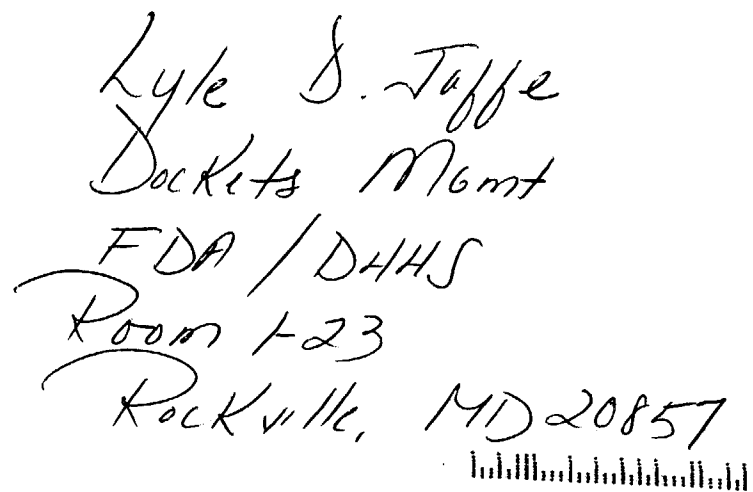 Lyle D. Jaffe
Dockets Mgmt
FDA / DHHS
Room 1-23
Rockville, MD 20857